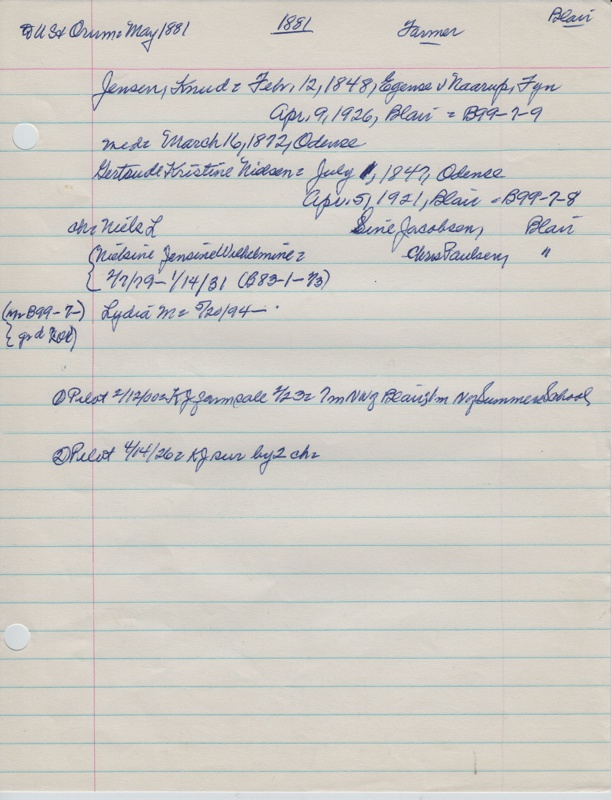 Blair
DUSA Orum = May 1881 1881 Farmer
Jensen, Knud = Febr. 12, 1848, Egense v Naarup, Fyn
Apr. 9, 1926, Blair = B99-7-9
md = March 16, 1872, Odense
Gertrude Kristine Nielsen = July 1, 1847, Odense
Apr. 5, 1921, Blair = B99-7-8
ch = Niels L Sine Jacobsen, Blair
Nielsine Jensine Wilhelmine = Chris Paulsen, "
2/7/79 - 1/14/31 (B83-1-73)
(m B99-7-) Lydia M = 5/20/94 -
① Pilot 2/12/00 = KJ farm sale 2/23 = 7 m NW of Blair, 1 m N of Summers School
② Pilot 4/14/26 = KJ sur by 2 ch =